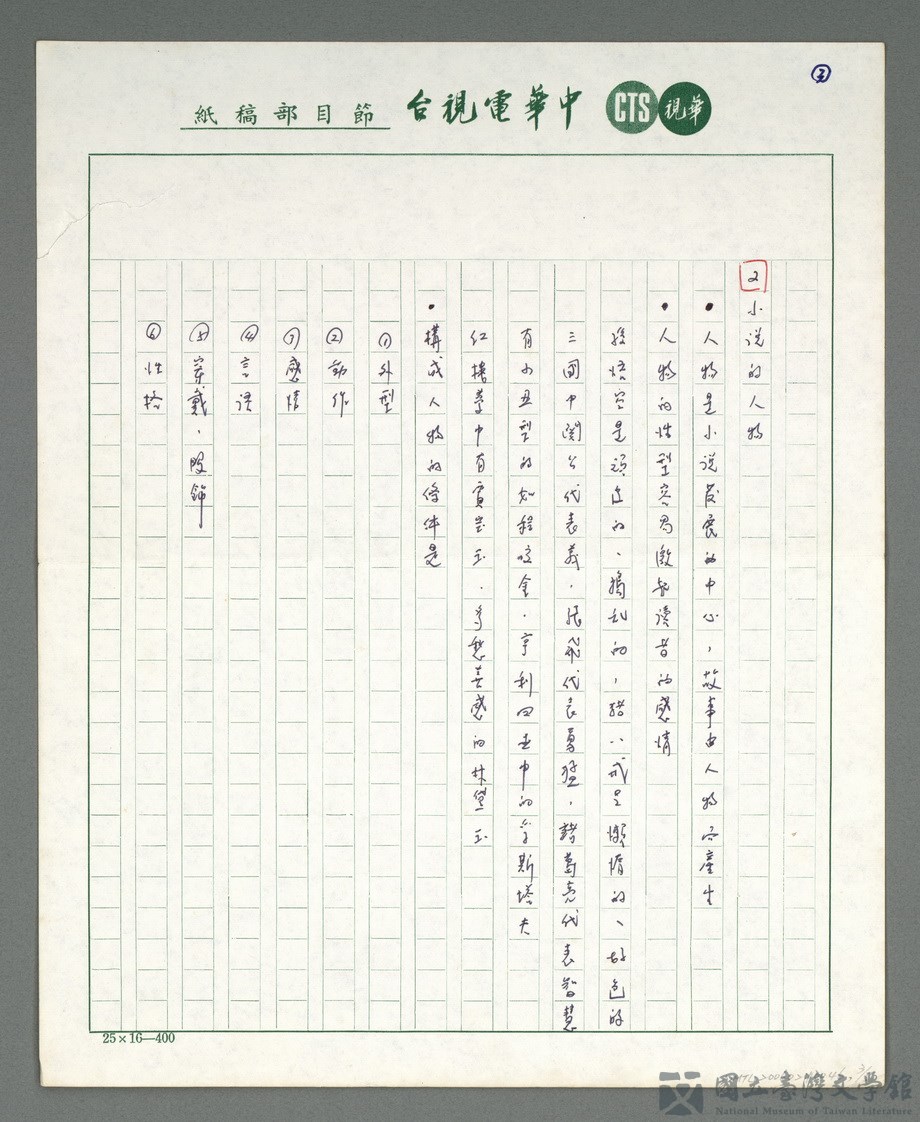 ③
華視 CTS 中華電視台 節目部稿紙
2 小说的人物
• 人物是小说发展的中心，故事由人物而產生
• 人物的性型容易激起读者的感情
孫悟空是頑皮的、搗乱的，猪八戒是懶惰的、好色的
三國中関公代表義，張飛代表勇猛，諸葛亮代表智慧
有小丑型的如程咬金．亨利四世中的孚斯塔夫
红樓夢中有賈宝玉．多愁善感的林黛玉
• 構成人物的條件是
① 外型
② 動作
③ 感情
④ 言语
⑤ 穿戴．服飾
⑥ 性格
25×16—400
國立臺灣文學館
National Museum of Taiwan Literature